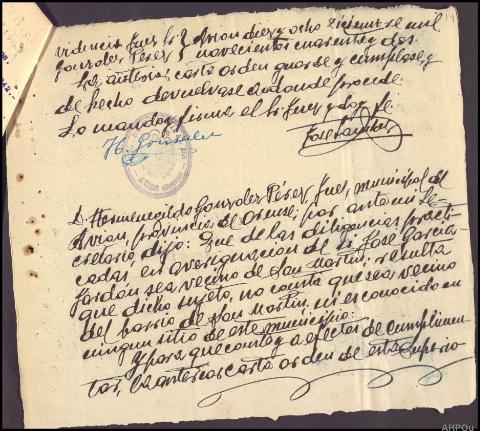 videncia Juez Sr.} Avion diez y ocho Diciembre mil
Gonzalez Pérez } novecientos cuarenta y dos
La anterior carta orden guarde y cumplase, y
de hecho devuelvase a donde procede.
Lo mandó y firma el Sr. Juez y doy fe.
H. Gonzalez
D. Hermenegildo Gonzalez Pérez, Juez municipal de
Avion, provincia de Orense; por ante mi Se-
cretario, dijo: Que de las diligencias practi-
cadas en averiguación de si José Garcia
Jordán sea vecino de San Martin; resulta
que dicho sujeto, no consta que sea vecino
del barrio de San Martin, ni es conocido en
ningun sitio de este municipio:
Y para que conste y a efectos de cumplimen-
tar, la anterior carta orden de esta Superio
AHPOu